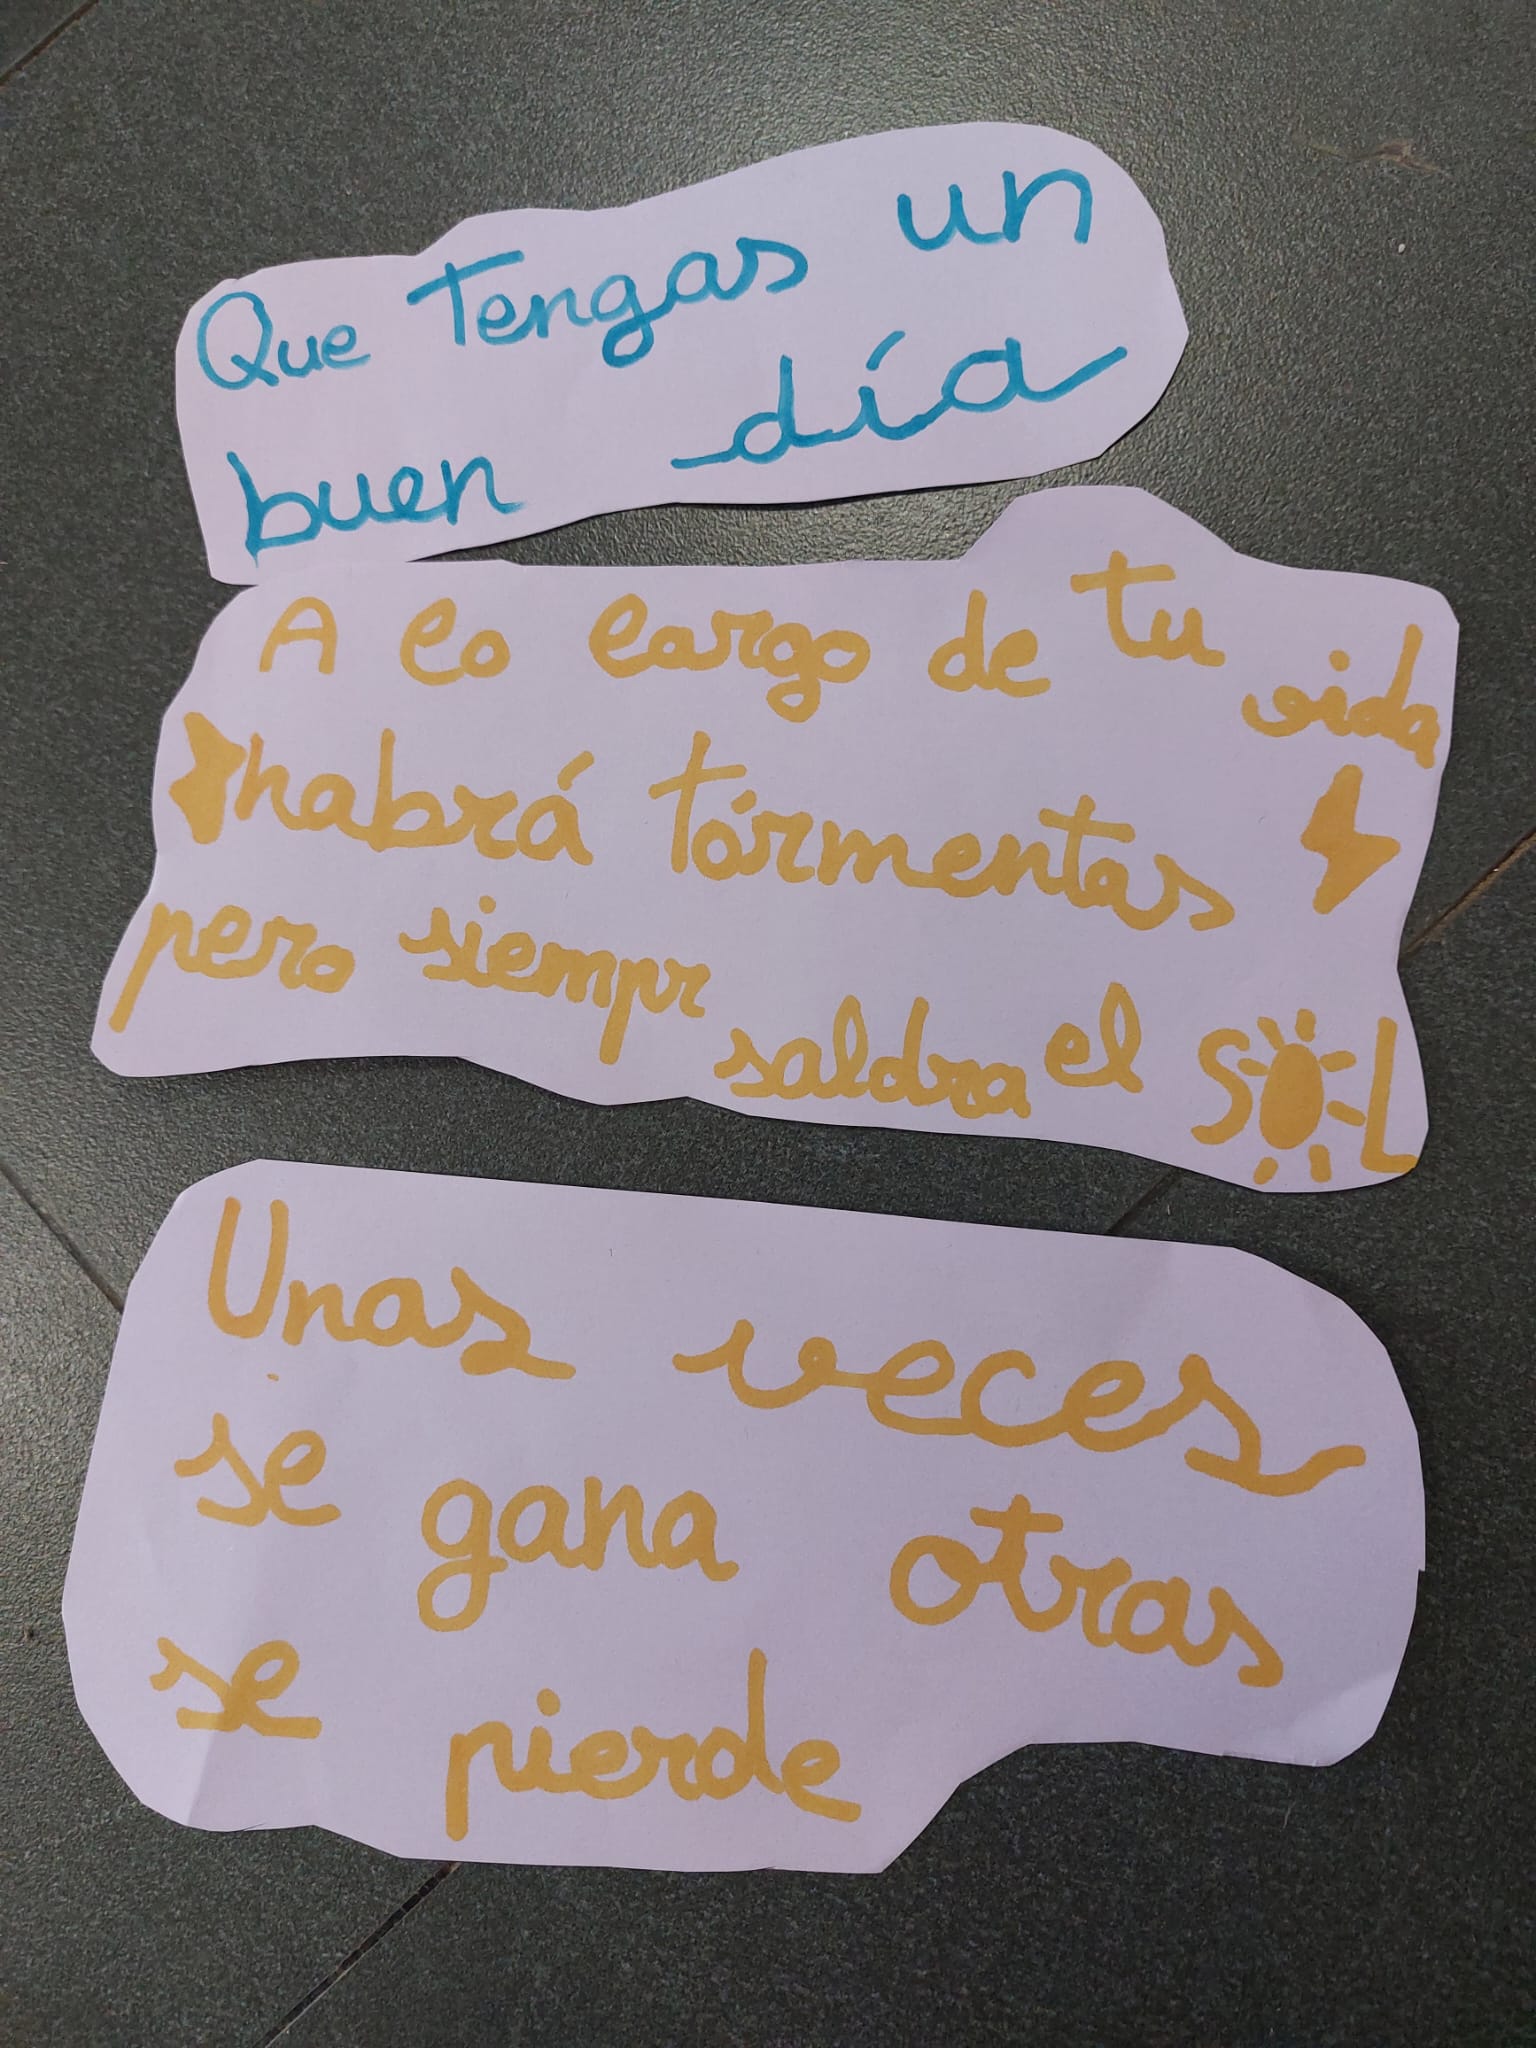 Que Tengas un
buen día
A lo largo de tu vida
habrá tormentas
pero siempr saldra el SOL
Unas veces
se gana otras
se pierde